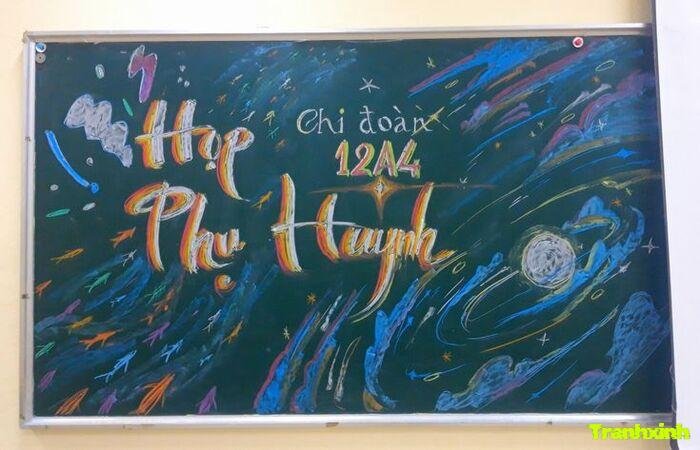 Chi đoàn
12A4
Họp
Phụ Huynh
Tranhxinh